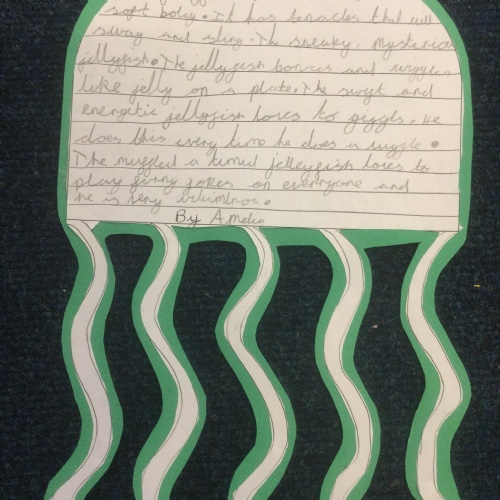 soft body. It has tenacles that will
sway and sting. The sneaky, mysterious
jellyfish. The jellyfish bounces and wiggles
like jelly on a plate. The swift and
energetic jellyfish loves to giggle. He
does this every time he does a wiggle.
The muffled a timid jelleyfish loves to
play funny jokes on everyone and
he is very
By Amelia